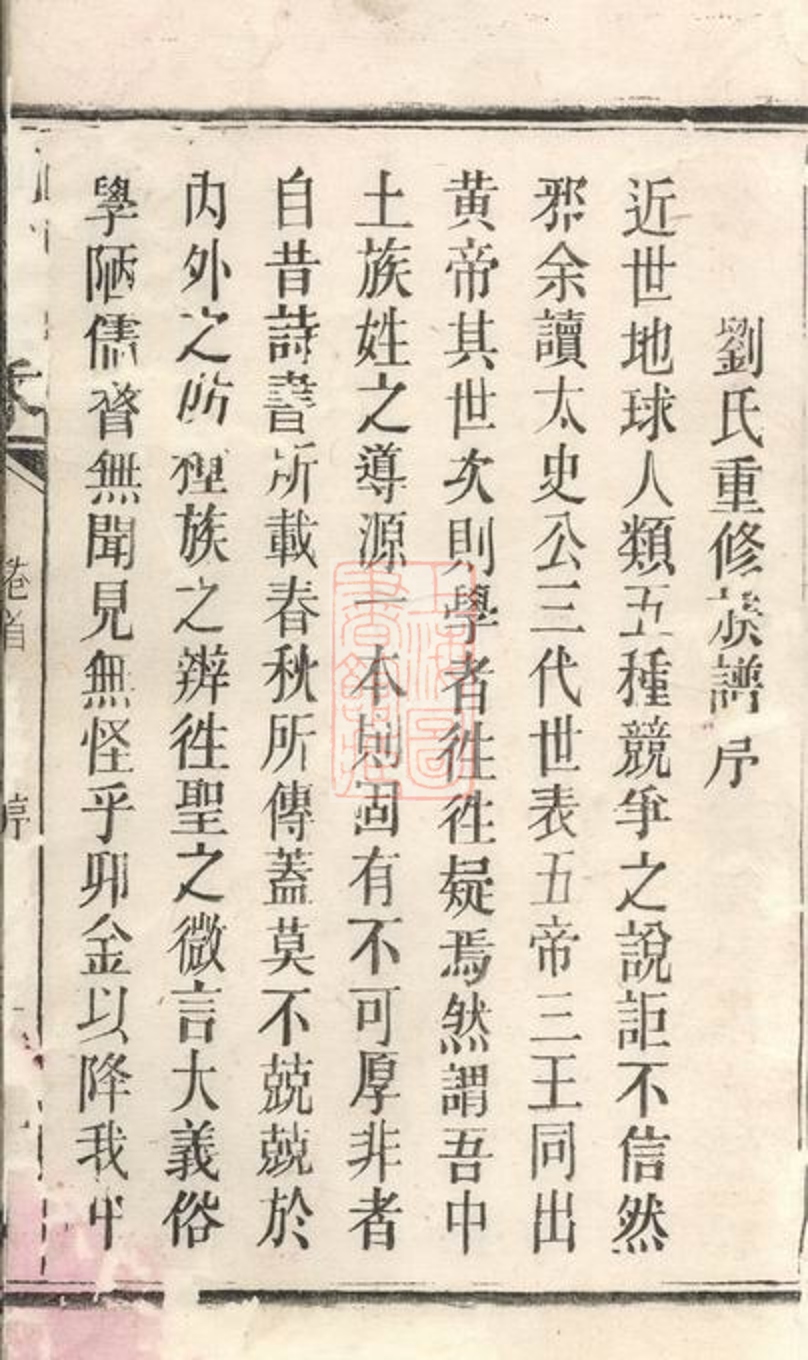 劉氏重修族譜序
近世地球人類五種競爭之說詎不信然
邪余讀太史公三代世表五帝三王同出
黃帝其世次則學者徃徃疑焉然謂吾中
土族姓之導源一本則固有不可厚非者
自昔詩書所載春秋所傳蓋莫不兢兢於
内外之防種族之辨徃聖之微言大義俗
學陋儒瞀無聞見無怪乎卯金以降我中
卷首
序
上海圖書館藏